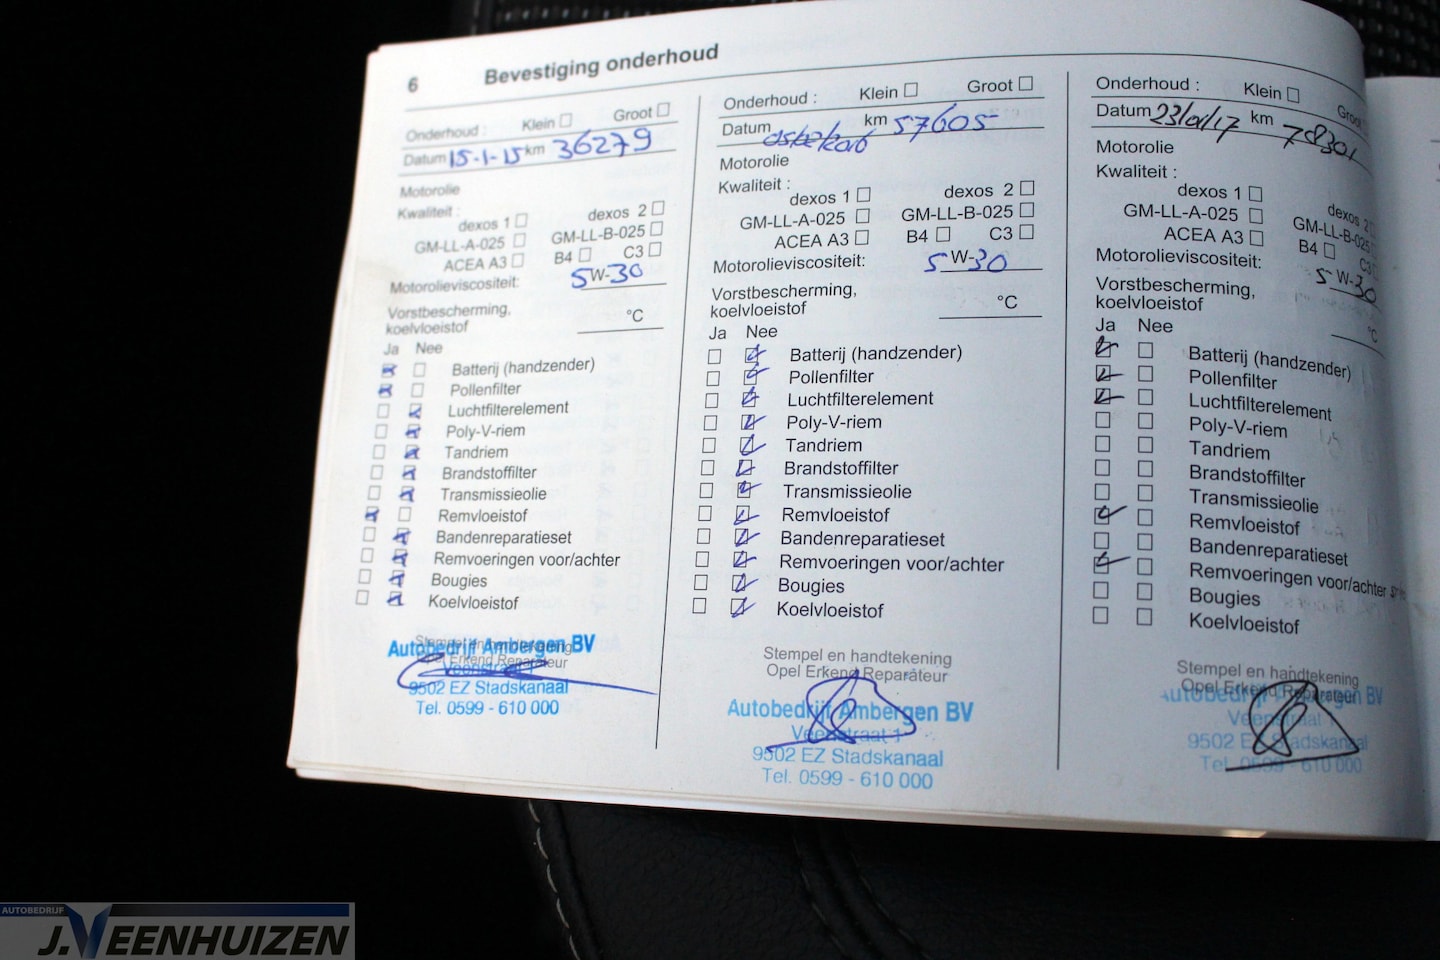 6 Bevestiging onderhoud
Onderhoud : Klein Groot
Datum 15-1-15 km 36279
Motorolie
Kwaliteit :
dexos 1 dexos 2
GM-LL-A-025 GM-LL-B-025
ACEA A3 B4 C3
Motorolieviscositeit: 5W-30
Vorstbescherming,
koelvloeistof °C
Ja Nee
Batterij (handzender)
Pollenfilter
Luchtfilterelement
Poly-V-riem
Tandriem
Brandstoffilter
Transmissieolie
Remvloeistof
Bandenreparatieset
Remvoeringen voor/achter
Bougies
Koelvloeistof
Stempel en handtekening
Opel Erkend Reparateur
Autobedrijf Ambergen BV
Veenstraat 1
9502 EZ Stadskanaal
Tel. 0599 - 610 000
Onderhoud : Klein Groot
Datum km 57605
Motorolie
Kwaliteit :
dexos 1 dexos 2
GM-LL-A-025 GM-LL-B-025
ACEA A3 B4 C3
Motorolieviscositeit: 5W-30
Vorstbescherming,
koelvloeistof °C
Ja Nee
Batterij (handzender)
Pollenfilter
Luchtfilterelement
Poly-V-riem
Tandriem
Brandstoffilter
Transmissieolie
Remvloeistof
Bandenreparatieset
Remvoeringen voor/achter
Bougies
Koelvloeistof
Stempel en handtekening
Opel Erkend Reparateur
Autobedrijf Ambergen BV
Veenstraat 1
9502 EZ Stadskanaal
Tel. 0599 - 610 000
Onderhoud : Klein Groot
Datum 23/01/17 km 78301
Motorolie
Kwaliteit :
dexos 1 dexos 2
GM-LL-A-025 GM-LL-B-025
ACEA A3 B4 C3
Motorolieviscositeit: 5W-30
Vorstbescherming,
koelvloeistof °C
Ja Nee
Batterij (handzender)
Pollenfilter
Luchtfilterelement
Poly-V-riem
Tandriem
Brandstoffilter
Transmissieolie
Remvloeistof
Bandenreparatieset
Remvoeringen voor/achter
Bougies
Koelvloeistof
Stempel en handtekening
Opel Erkend Reparateur
Autobedrijf Ambergen BV
Veenstraat 1
9502 EZ Stadskanaal
Tel. 0599 - 610 000
AUTOBEDRIJF
J.VEENHUIZEN